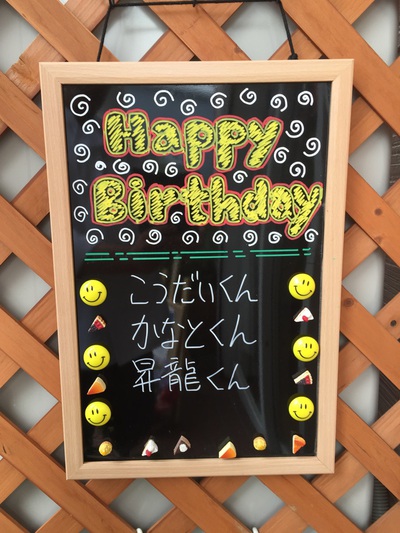 Happy
Birthday
こうだいくん
かなとくん
昇龍くん